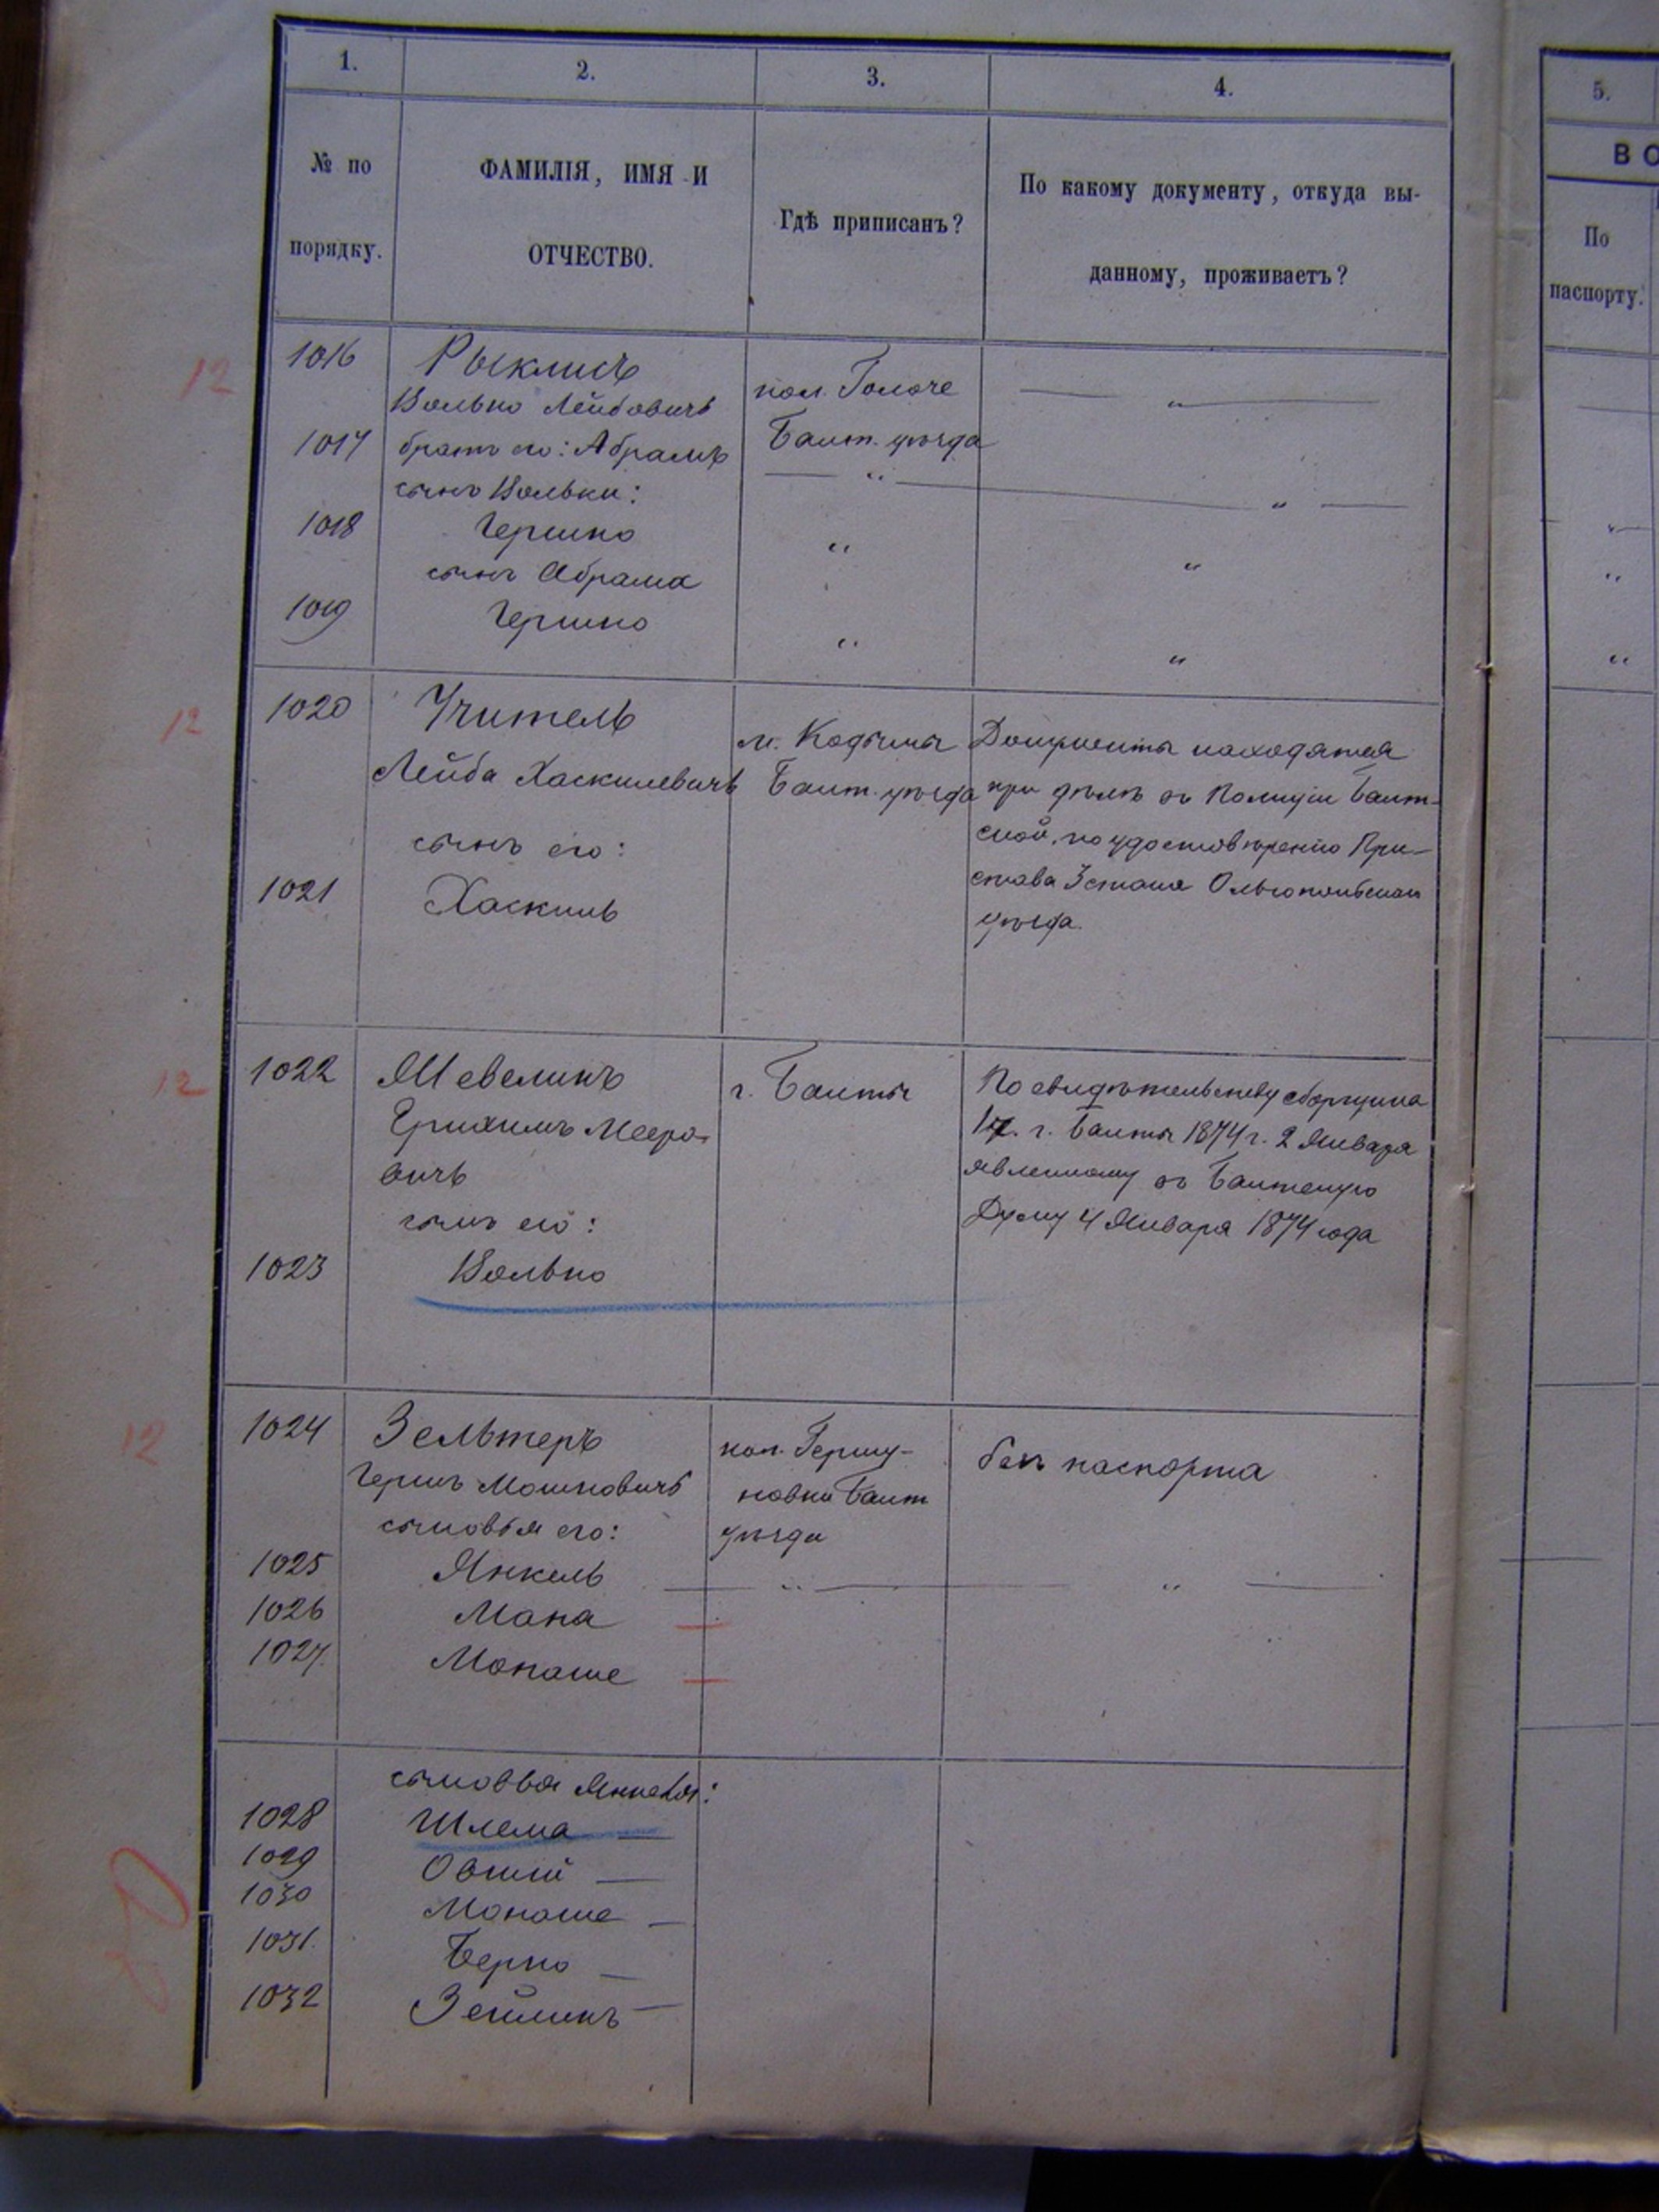 1. 2. 3. 4. 5.
№ по порядку.
ФАМИЛІЯ, ИМЯ И ОТЧЕСТВО.
Гдѣ приписанъ?
По какому документу, откуда вы-
данному, проживаетъ?
ВО
По паспорту.
12 1016 Рыклисъ
Волько Лейбовичъ кол. Голоче — " —
1017 братъ его: Абрамъ Балт. уѣзда
сынъ Вольки: — " — " —
1018 Гершко " "
сынъ Абрама
1019 Гершко " "
12 1020 Учитель
м. Кодымы Документы находятся
Лейба Хаскилевичъ Балт. уѣзда при дѣлѣ въ Полиціи Балт-
сынъ его: ской, по удостовѣренію При-
1021 Хаскиль става 3 стана Ольгопольскаго
уѣзда.
12 1022 Шевелинъ г. Балты По свидѣтельству сборщика
Ерихимъ Мееро- г. Балты 1874 г. 2 Января
вичъ явленному въ Балтскую
сынъ его: Думу 4 Января 1874 года
1023 Волько
12 1024 Зельтеръ кол. Гершу- безъ паспорта
Гершъ Мошковичъ новки Балт
сыновья его: уѣзда
1025 Янкель — " — " —
1026 Мана —
1027. Монаше —
сыновья Янкеля:
1028 Шлема —
1029 Овшій —
1030 Монаше —
1031. Берко —
1032 Зейликъ —